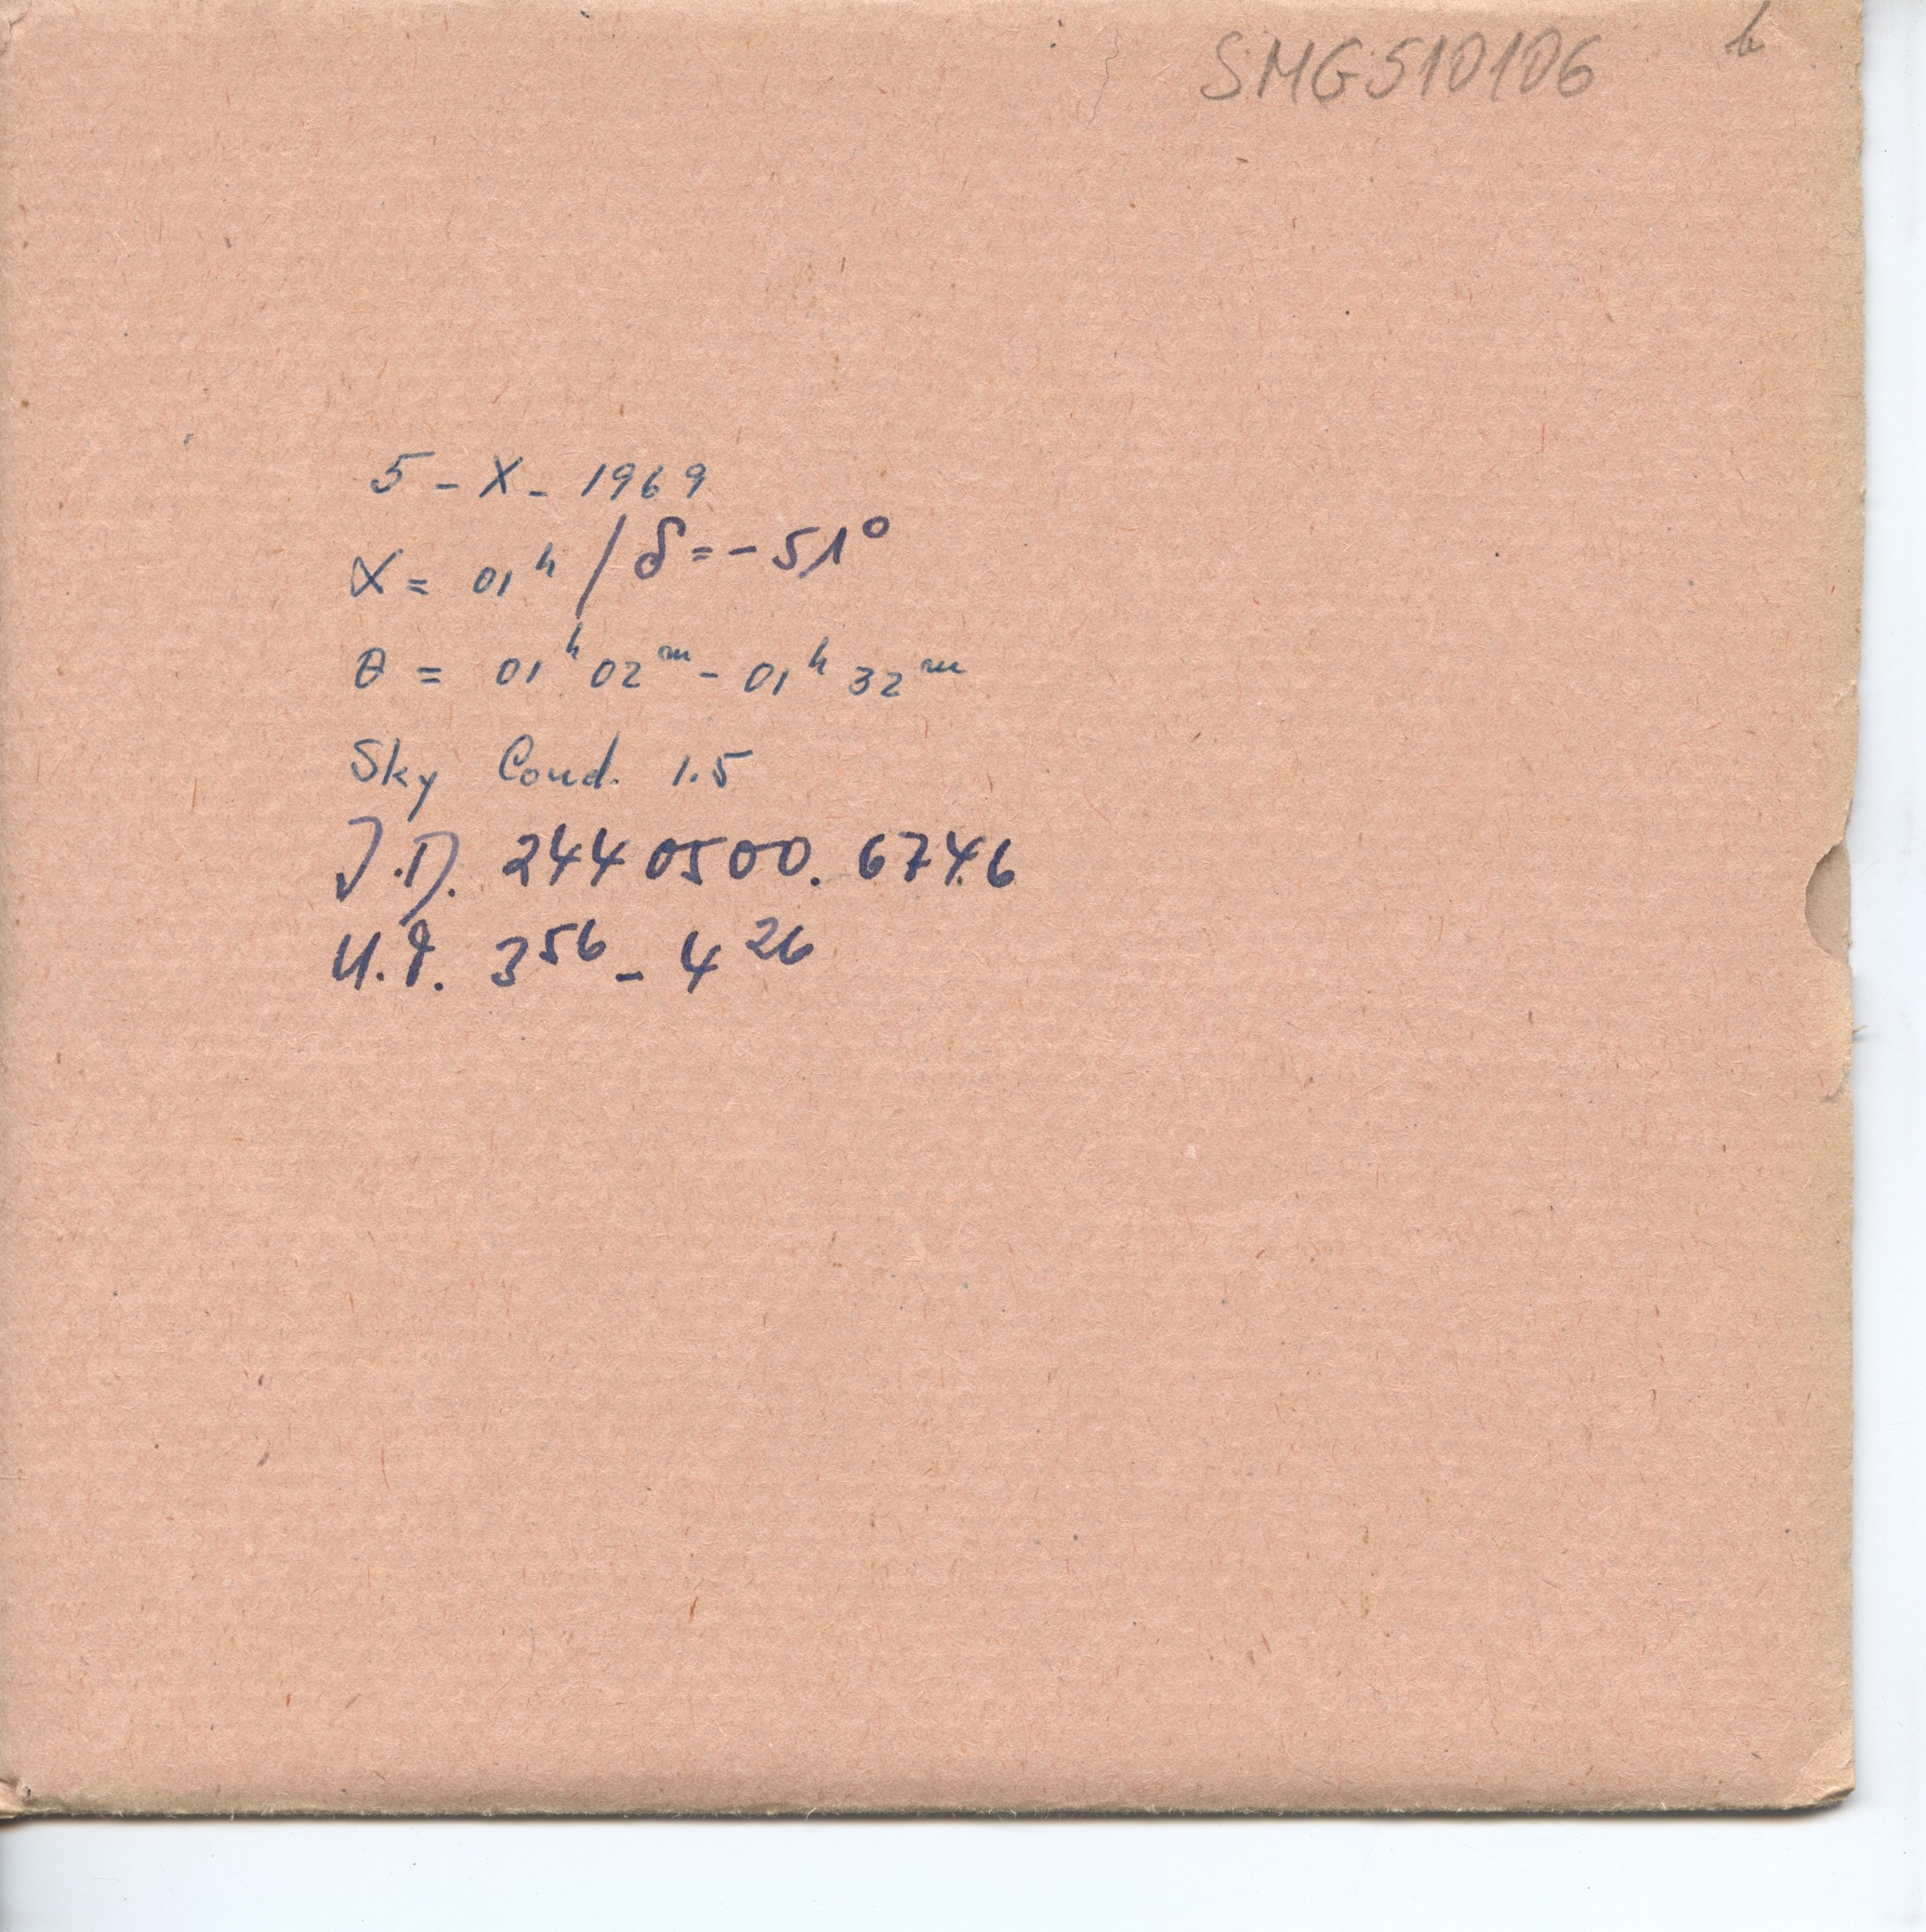 SMG510106 b
5 - X - 1969
α = 01ʰ / δ = - 51°
θ = 01ʰ 02ᵐ - 01ʰ 32ᵐ
Sky Cond. 1.5
J.D. 2440500.6746
U.T. 3⁵⁶ - 4²⁶